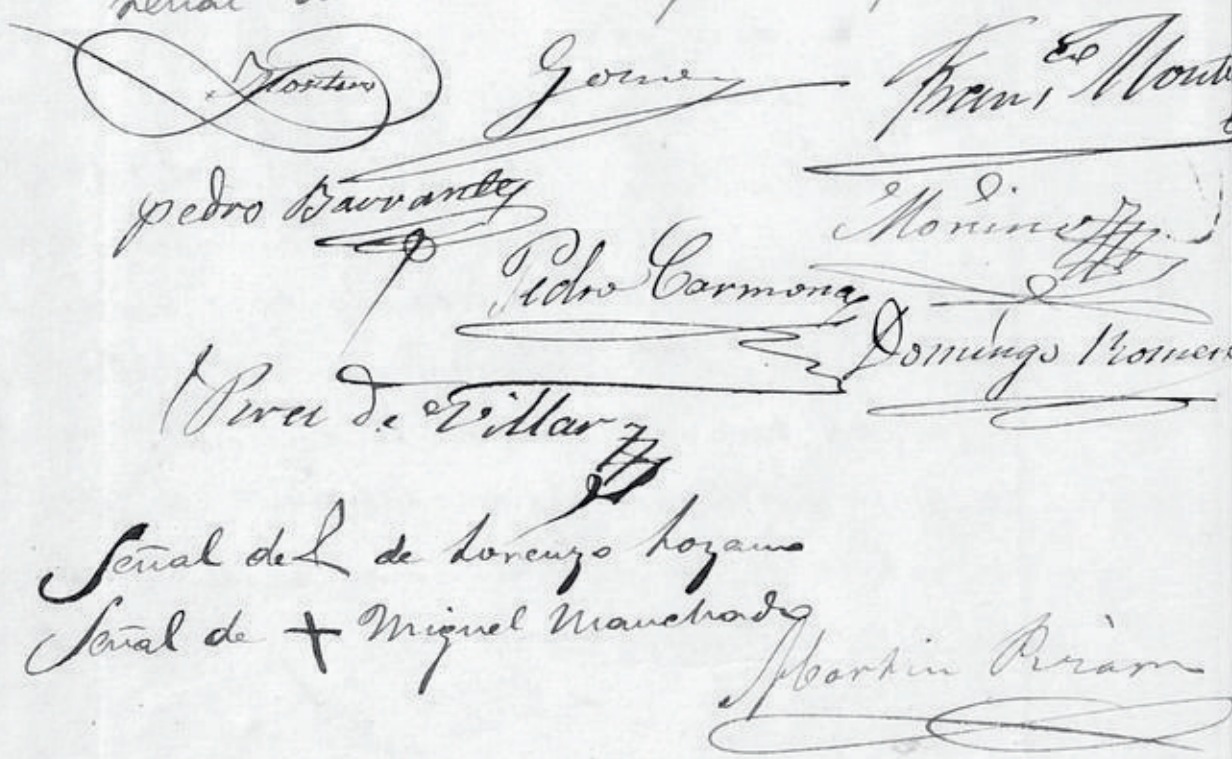 Señal
Montero Gomez Fran, Mont
Pedro Barrantes
Morino
Pedro Carmona
Domingo Romer
Perez de Villar
Señal de de Lorenzo Lozano
Señal de + Miguel Manchado
Martin